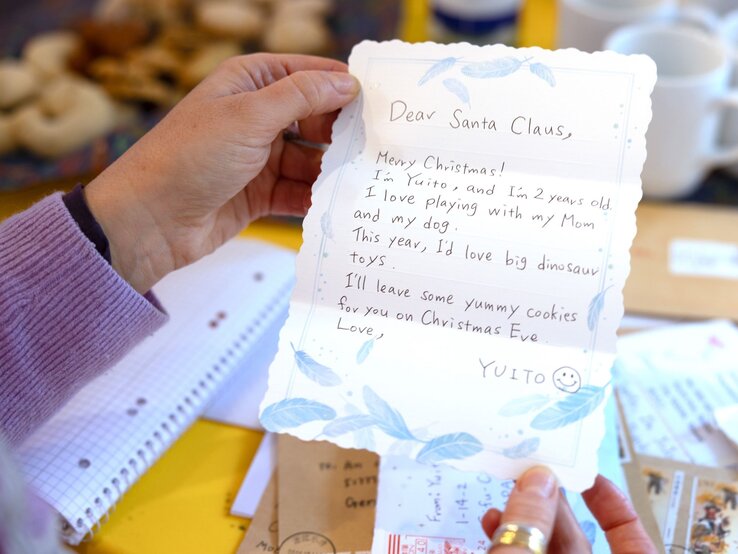 Dear Santa Claus,
Merry Christmas!
I'm Yuito, and I'm 2 years old.
I love playing with my Mom
and my dog.
This year, I'd love big dinosaur
toys.
I'll leave some yummy cookies
for you on Christmas Eve.
Love,
YUITO
From: Yui
1-14-2